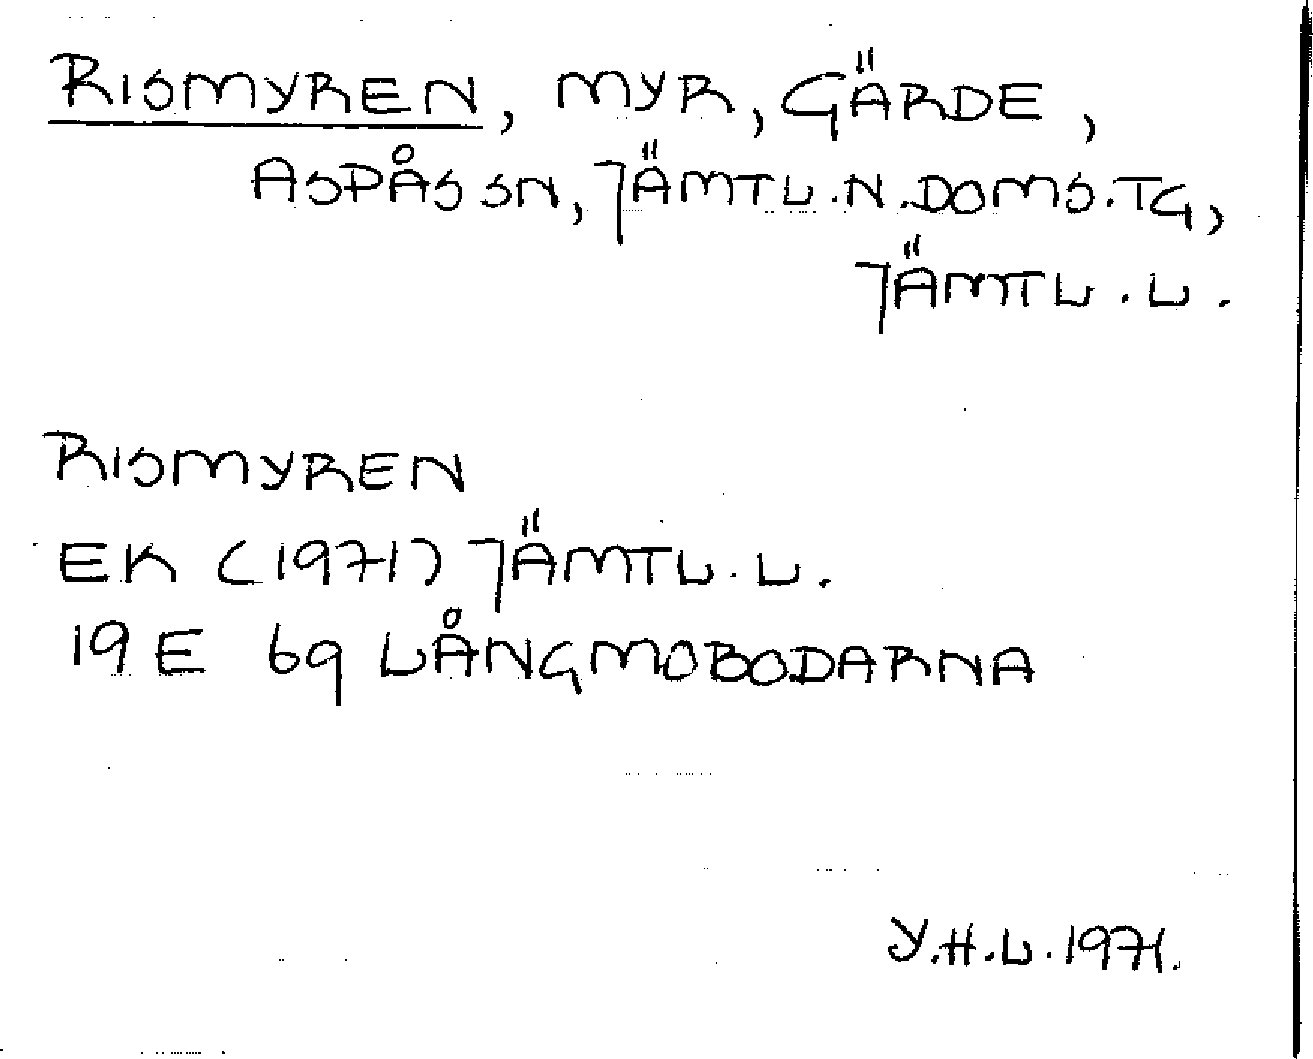 RISMYREN, MYR, GÄRDE,
ASPÅS SN, JÄMTL.N.DOMS.TG,
JÄMTL.L.
RISMYREN
EK (1971) JÄMTL.L.
19E 6g LÅNGMOBODARNA
Y.H.L.1971.